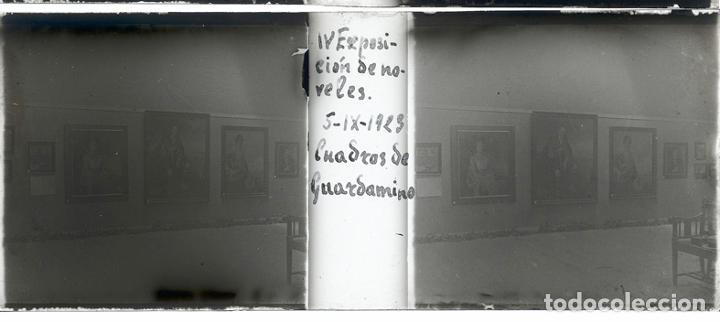 IV Exposi-
ción de no-
veles.
5-IX-1923
Cuadros de
Guardamino
todocoleccion.net